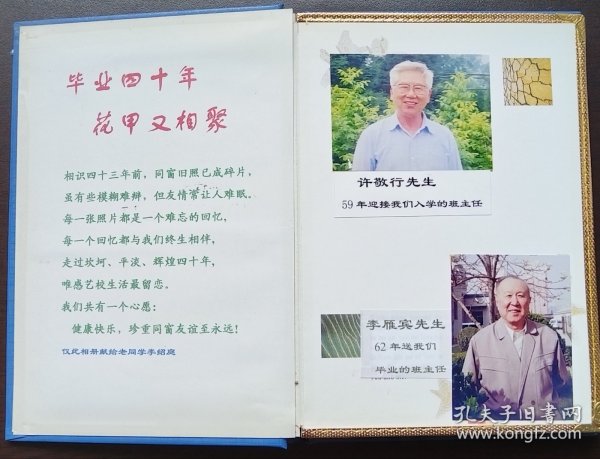 毕业四十年
花甲又相聚
相识四十三年前，同窗旧照已成碎片，
虽有些模糊难辩，但友情常让人难眠。
每一张照片都是一个难忘的回忆，
每一个回忆都与我们终生相伴，
走过坎坷、平淡、辉煌四十年，
唯感艺校生活最留恋。
我们共有一个心愿：
健康快乐，珍重同窗友谊至永远！
仅此相册献给老同学李绍庭
许敬行先生
59年迎接我们入学的班主任
李雁宾先生
62年送我们
毕业的班主任
孔夫子旧书网
www.kongfz.com